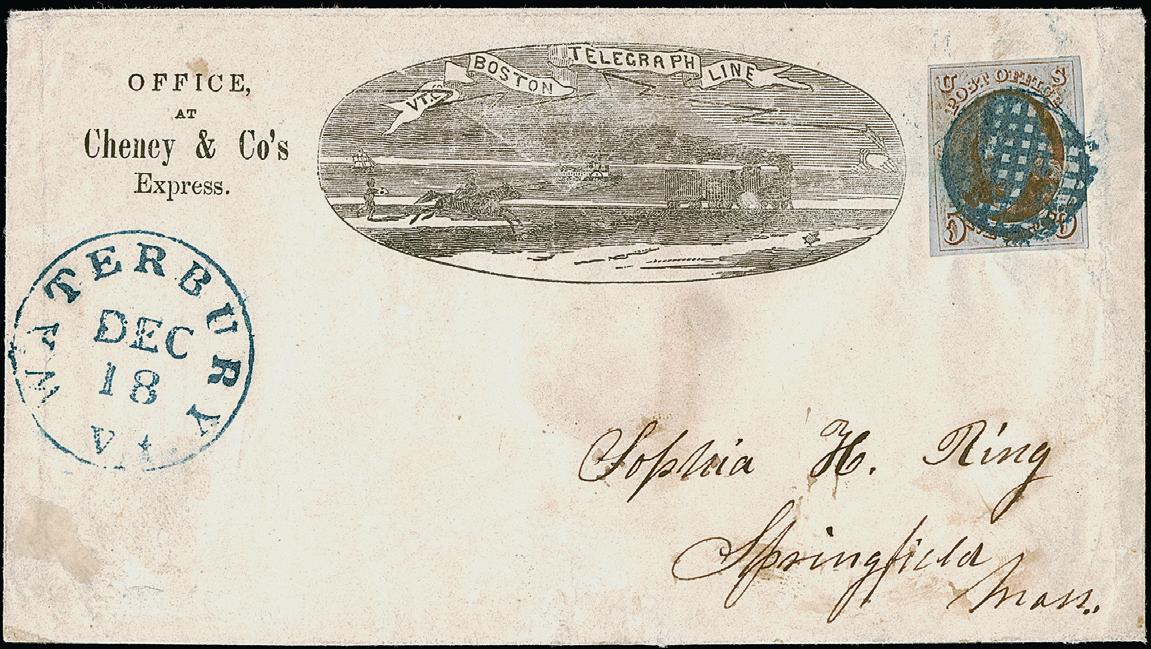 OFFICE,
AT
Cheney & Co's
Express.
VT. & BOSTON TELEGRAPH LINE
U S
POST OFFICE
WATERBURY
DEC
18
Vt
Sophia H. Ring
Springfield
Mass.